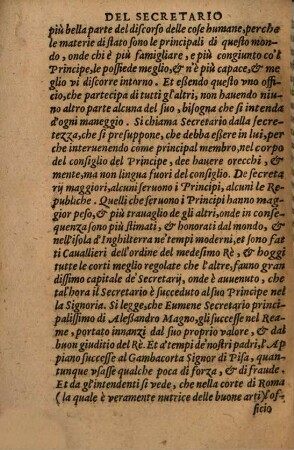 DEL SECRETARIO
più bella parte del discorso delle cose humane, perche
le materie di stato sono le principali di questo mon-
do, onde chi è più famigliare, e più congiunto co'l
Principe, le possiede meglio, & n'è più capace, & me
glio vi discorre intorno. Et essendo questo vno offi-
cio, che partecipa di tutti gl'altri, non hauendo niu-
no altro parte alcuna del suo, bisogna che si intenda
d'ogni maneggio. Si chiama Secretario dalla secre-
tezza, che si presuppone, che debba eßere in lui, per
che interuenendo come principal membro, nel corpo
del consiglio del Principe, dee hauere orecchi, &
mente, ma non lingua fuori del consiglio. De secret<br>arij maggiori, alcuni seruono i Principi, alcuni le Re
publiche. Quelli che seruono i Principi hanno mag-
gior peso, & più trauaglio de gli altri, onde in conse-
quenza sono più stimati, & honorati dal mondo, &
nell'isola d'Inghilterra ne'tempi moderni, et sono fat
ti Cauallieri dell'ordine del medesimo Rè, & hoggi
tutte le corti meglio regolate che l'altre, fanno gran
dissimo capitale de' Secretarij, onde è auuenuto, che
tal'hora il Secretario è succeduto al suo Principe nel
la Signoria. Si legge, che Eumene Secretario princi-
palissimo di Aleßandro Magno, gli successe nel Rea
me, portato innanzi dal suo proprio valore, & dal
buon giuditio del Rè. Et à tempi de'nostri padri, l'Ap
piano successe al Gambacorta Signor di Pisa, quan-
tunque vsasse qualche poca di forza, & di fraude.
Et da gl'intendenti si vede, che nella corte di Roma
(la quale è veramente nutrice delle buone arti) l'of-
ficio